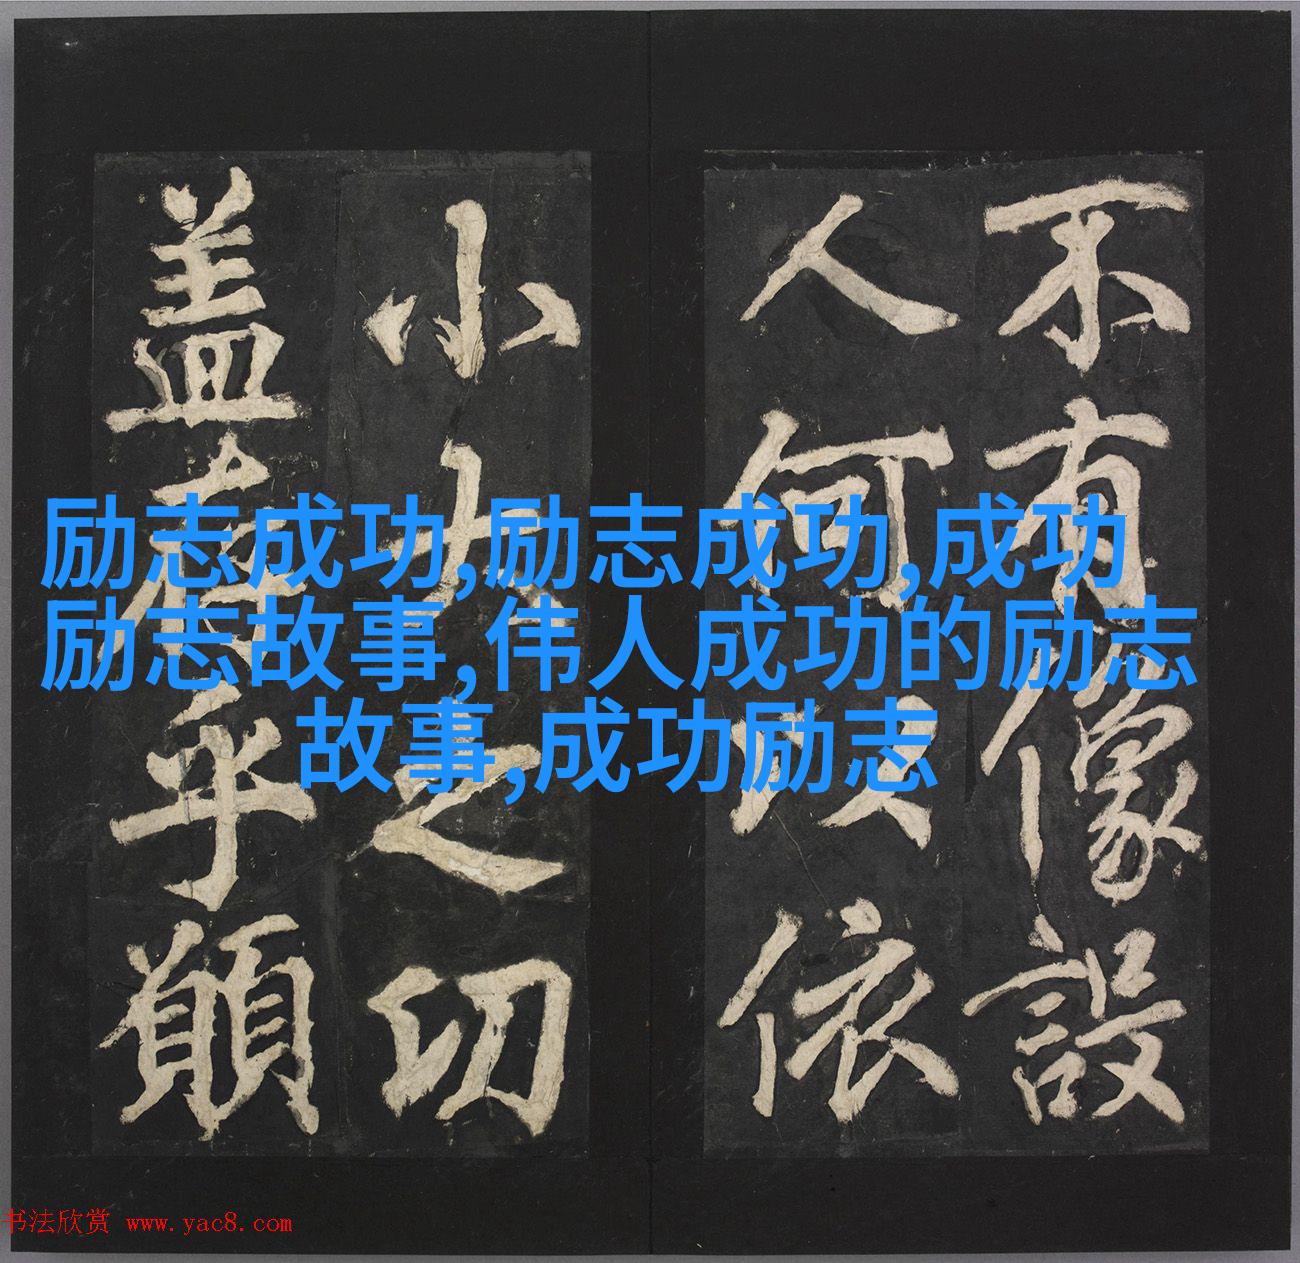 不有像設
人何以依
小大之切
盖乎願
励志成功,励志成功,成功
励志故事,伟人成功的励志
故事,成功励志
书法欣赏 www.yac8.com